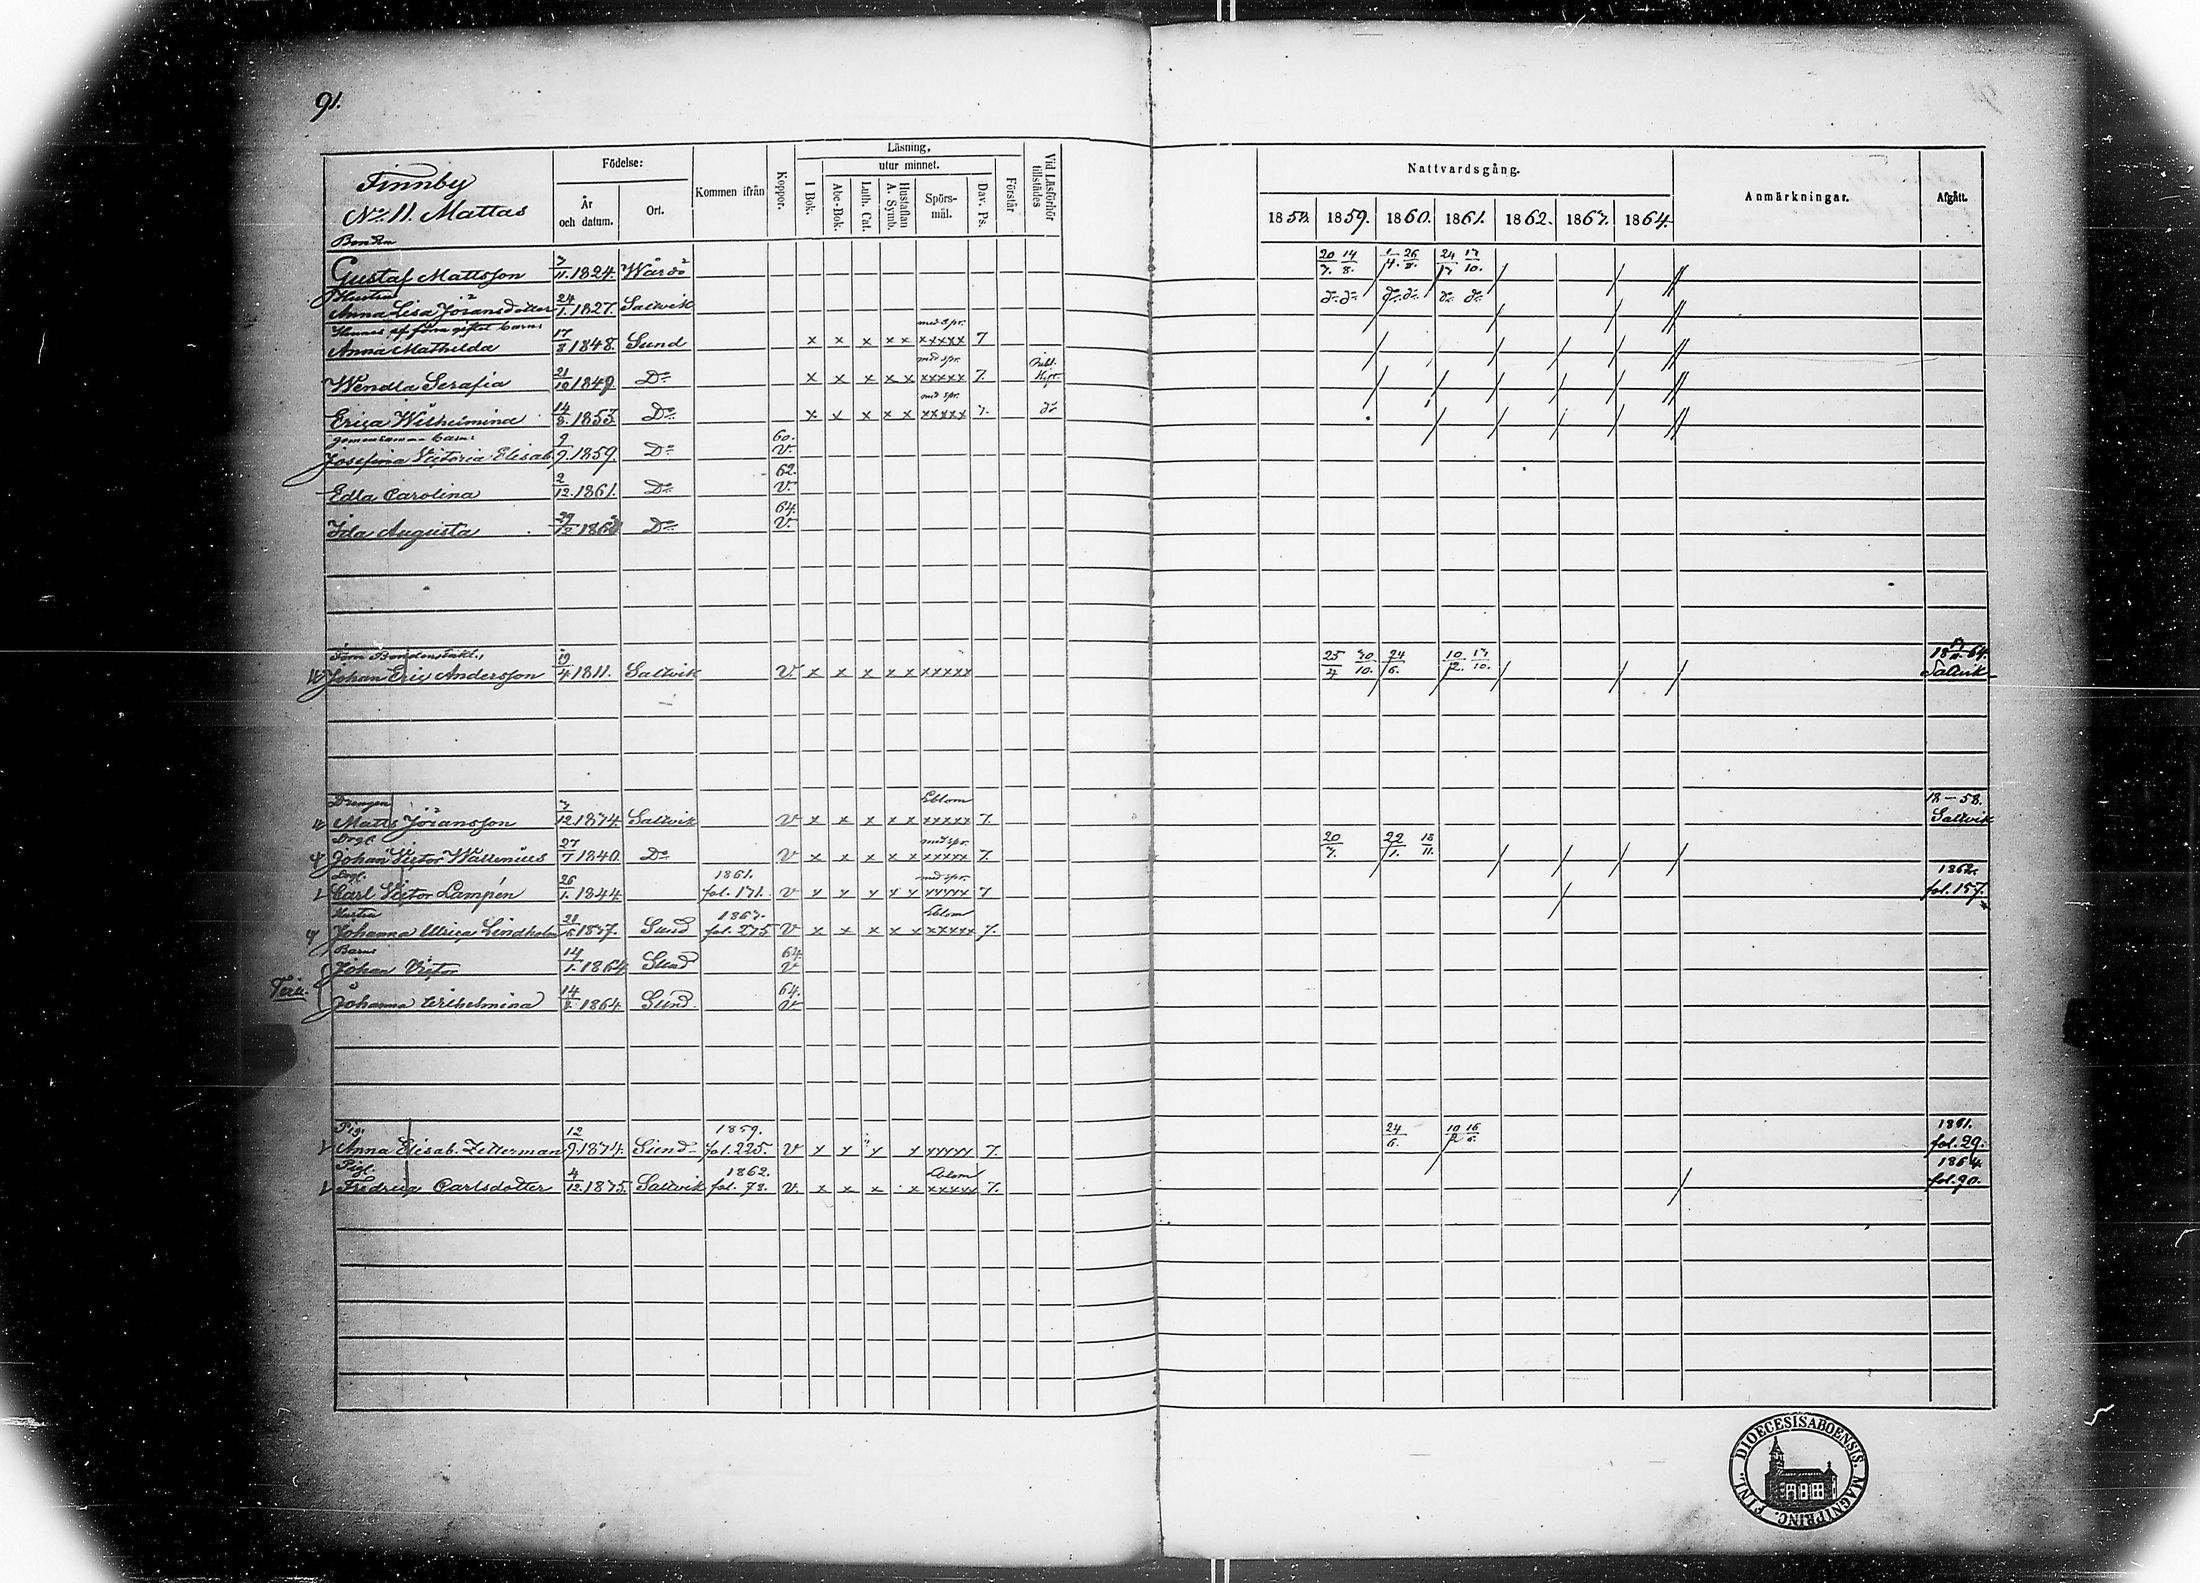 91.
Finnby
No 11. Mattas
Födelse:
År och datum.
Ort.
Kommen ifrån
Koppor.
Läsning,
utur minnet.
I Bok.
Abc-Bok.
Luth. Cat.
Hustaflan A. Symb.
Spörsmål.
Dav. Ps.
Förstår
Vid Läsförhör tillstädes
Nattvardsgång.
1858. 1859. 1860. 1861. 1862. 1863. 1864.
Anmärkningar.
Afgått.
Bonden
Gustaf Mattsson 3/11 1824. Wårdö 20/7. 14/8. 1/4. 26/8. 24/3 13/10.
Hustru
Anna Lisa Jöransdotter 24/1. 1827. Saltvik do do do do do do
Hennes af förra giftet barn: med spr.
Anna Mathilda 17/8 1848. Sund x x x x x xxxxx 7
med spr.
Wendla Serafia 21/12 1849. Do x x x x x xxxxx 7.
med spr.
Erica Wilhelmina 14/3. 1853. Do x x x x x xxxxx 7. do
gemensamma barn: 60.
Josefina Victoria Elisab. 9/9. 1859. Do V.
62.
Edla Carolina 2/12. 1861. Do V.
64.
Ida Augusta 29/12 1863 Do V.
Johan Eric Andersson 19/4 1811. Saltvik V. x x x x x xxxxx 25/4 30/10. 24/6. 10/2. 13/10. Saltvik
Drengen Eblom 18–58.
Matts Jöransson 3/12 1834. Saltvik V x x x x x xxxxx 7. Saltvik
Drgl. med spr.
Johan Victor Wallenius 27/7 1840. Do V x x x x x xxxxx 7. 20/7. 22/1. 18/11.
Drgl. 1861. med spr. 1862.
Carl Victor Lampén 26/1. 1844. fol. 171. V x x x x x xxxxx 7 fol. 157.
Hustru 1863. Eblom
Johanna Ulrica Lindholm 21/5 1837. Sund fol. 275 V x x x x x xxxxx 7.
Barn: 64.
Johan Victor 14/1. 1864. Sund V
64.
Johanna Wilhelmina 14/1. 1864. Sund. V
Pig. 1859. 1861.
Anna Elisab. Zetterman 12/9. 1834. Sund fol. 225. V x x x x xxxxx 7. 24/6. 10/2 16/6. fol. 29.
Pigl. 1862. Eblom 1864.
Fredrica Carlsdotter 4/12. 1835. Saltvik fol. 78. V. x x x x xxxxx 7. fol. 90.
FINL. DIOECESIS ABOENSIS. MAGNI PRINC.